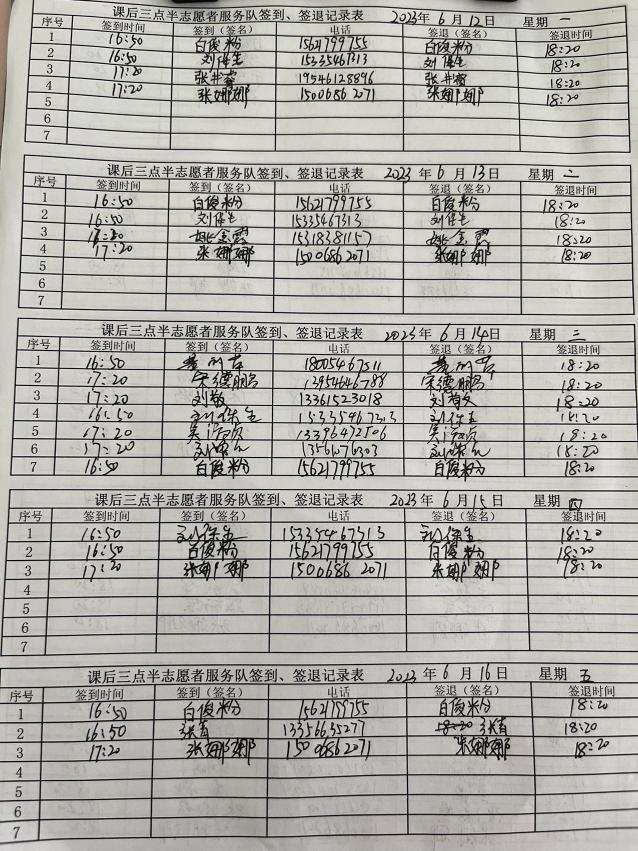 课后三点半志愿者服务队签到、签退记录表 2023年 6月12日 星期 一
序号 签到时间 签到（签名） 电话 签退（签名） 签退时间
1 16:50 白俊粉 15621799755 白俊粉 18:20
2 16:50 刘保生 15335467313 刘保生 18:20
3 17:20 张井睿 19546128896 张井睿 18:20
4 17:20 张娜娜 15006862071 张娜娜 18:20
5
6
7
课后三点半志愿者服务队签到、签退记录表 2023年 6月13日 星期 二
序号 签到时间 签到（签名） 电话 签退（签名） 签退时间
1 16:50 白俊粉 15621799755 白俊粉 18:20
2 16:50 刘保生 15335467313 刘保生 18:20
3 姚金霞 15318381157 姚金霞 18:20
4 17:20 张娜娜 15006862071 张娜娜 18:20
5
6
7
课后三点半志愿者服务队签到、签退记录表 2023年 6月14日 星期 三
序号 签到时间 签到（签名） 电话 签退（签名） 签退时间
1 16:50 18:20
2 17:20 宋德鹏 宋德鹏 18:20
3 17:20 刘敏 13361523018 刘敏 18:20
4 16:50 刘保生 15335467313 刘保生 18:20
5 17:20 18:20
6 17:20 13561076303 18:20
7 16:50 白俊粉 15621799755 白俊粉 18:20
课后三点半志愿者服务队签到、签退记录表 2023年 6月15日 星期 四
序号 签到时间 签到（签名） 电话 签退（签名） 签退时间
1 16:50 刘保生 15335467313 刘保生 18:20
2 16:50 白俊粉 15621799755 白俊粉 18:20
3 17:20 张娜娜 15006862071 张娜娜 18:20
4
5
6
7
课后三点半志愿者服务队签到、签退记录表 2023年 6月16日 星期 五
序号 签到时间 签到（签名） 电话 签退（签名） 签退时间
1 16:50 白俊粉 15621799755 白俊粉 18:20
2 16:50 张青 13356635277 18:20 张青 18:20
3 17:20 张娜娜 15006862071 张娜娜 18:20
4
5
6
7